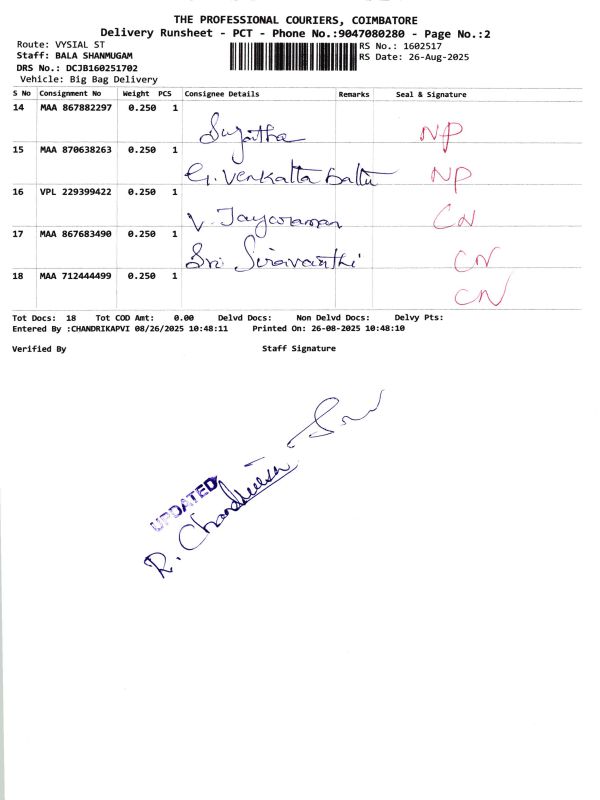 THE PROFESSIONAL COURIERS, COIMBATORE
Delivery Runsheet - PCT - Phone No.:9047080280 - Page No.:2
Route: VYSIAL ST
RS No.: 1602517
Staff: BALA SHANMUGAM
RS Date: 26-Aug-2025
DRS No.: DCJB160251702
Vehicle: Big Bag Delivery
S No Consignment No Weight PCS Consignee Details Remarks Seal & Signature
14 MAA 867882297 0.250 1
Sujatha NP
15 MAA 870638263 0.250 1
G. Venkatta NP
16 VPL 229399422 0.250 1
V. Jayaraman CN
17 MAA 867683490 0.250 1
Sri CN
18 MAA 712444499 0.250 1
CN
Tot Docs: 18 Tot COD Amt: 0.00 Delvd Docs: Non Delvd Docs: Delvy Pts:
Entered By :CHANDRIKAPVI 08/26/2025 10:48:11 Printed On: 26-08-2025 10:48:10
Verified By Staff Signature
UPDATED
R.